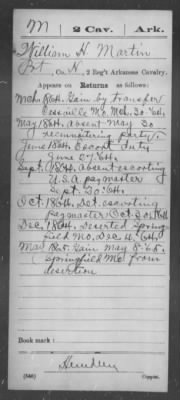 M 2 Cav. Ark.
William H. Martin
Pvt, Co. H, 2 Reg't Arkansas Cavalry.
Appears on Returns as follows:
Mch 1864. Gain by transfer
Cassville Mo. Mch. 30 '64.
May 1864. Absent May 30
recruiting party.
June 1864. Escort duty
June 27 '64.
Sept. 1864. Absent escorting
U.S.A. paymaster
Sept. 20 '64.
Oct. 1864. Det. escorting
paymaster Oct. 30 '64
Dec. 1864. Deserted Spring-
field Mo. Dec. 4 '64.
Mar 1865. Gain Mar 8 '65.
Springfield Mo from
desertion
Book mark:
(546) Copyist.